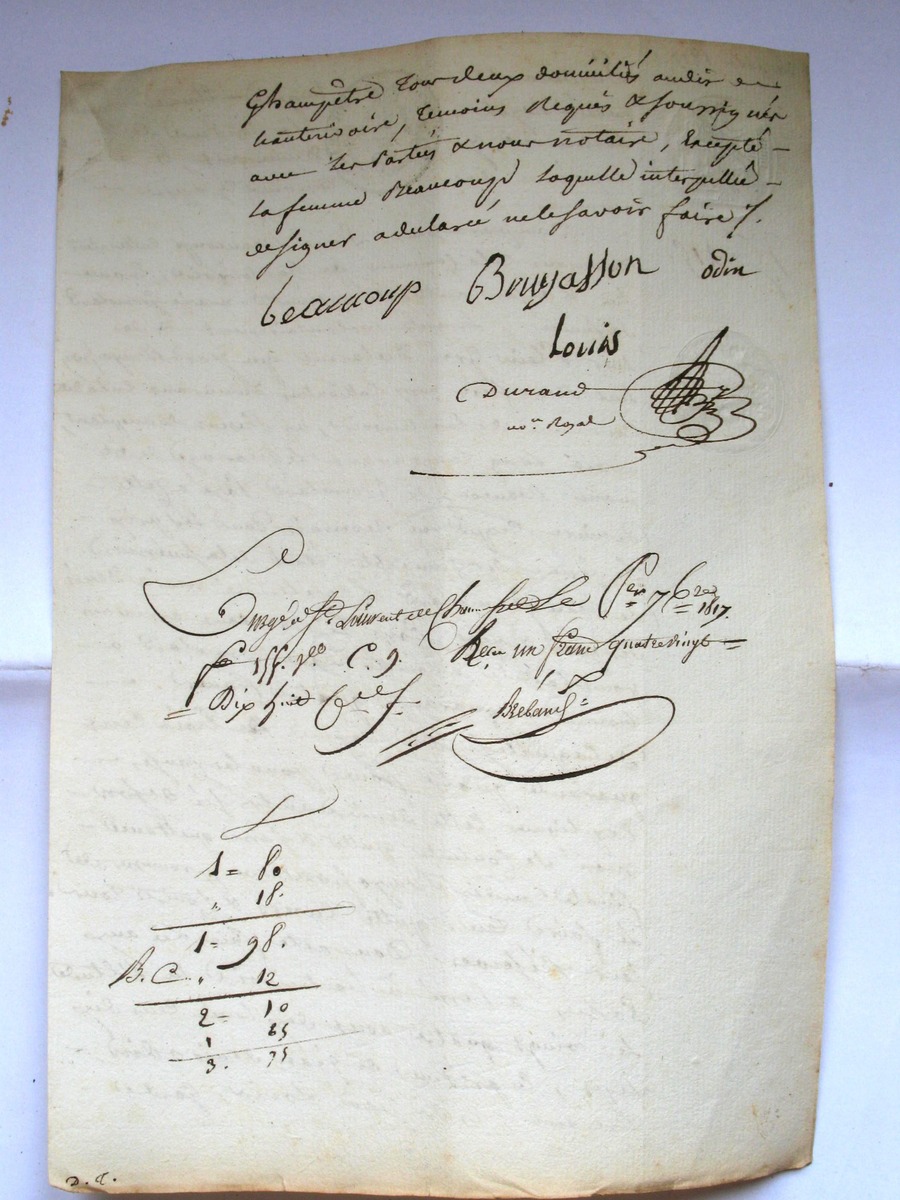 Champêtre Tous deux domiciliés audit en
hauterivoire, Temoins Requis & soussignés
avec les Parties & nous notaire, Excepté
la femme Beaucoup laquelle interpellée
de signer a declaré ne le savoir faire /.
beaucoup Bruyasson odin
Louis
Durand
no.re Royal
Enreg.é à St. Laurent de Cham... le Per 7bre 1817.
fo 155. Vo C. 9. Reçu un franc quatrevingt
= Dix huit C.
1 = 80
" 18.
1 = 98.
B. C. " 12
2 = 10
1 65
3. 75
D. C.